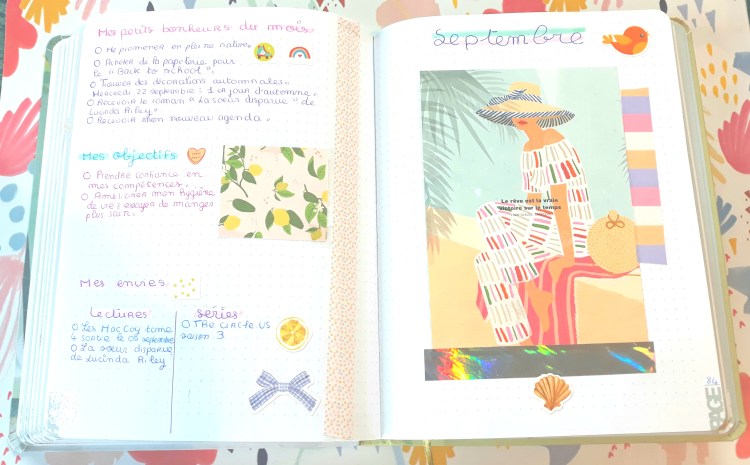 Mes petits bonheurs du mois
O Me promener en pleine nature.
O Acheter de la papeterie pour
le "Back to school".
O Trouver des décorations automnales.
Mercredi 22 septembre : 1er jour d'automne.
O Recevoir le roman "La soeur disparue" de
Lucinda Riley
O Recevoir mon nouveau agenda.
Mes objectifs
O Prendre confiance en
mes compétences.
O Améliorer mon hygiène
de vie : essayer de manger
plus sain.
Mes envies
Lectures
O Les MacCoy tome
4 sortie le 08 septembre
O La soeur disparue
de Lucinda Riley
séries
O The Circle US
saison 3
septembre
Le rêve est la vraie
victoire sur le temps
84
PAGE